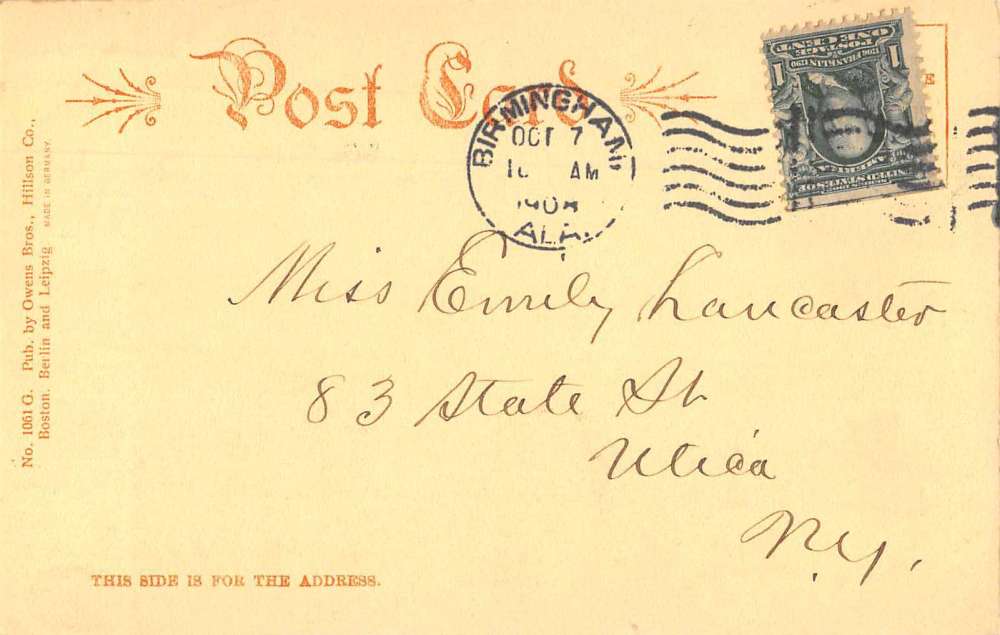 Post Card
BIRMINGHAM,
OCT 7
AM
ALA.
ONE CENT
POSTAGE
1 1
UNITED STATES OF
AMERICA
Miss Emily Lancaster
83 State St
Utica
N.Y.
THIS SIDE IS FOR THE ADDRESS.
No. 1061 G. Pub. by Owens Bros., Hillson Co.,
Boston. Berlin and Leipzig MADE IN GERMANY.